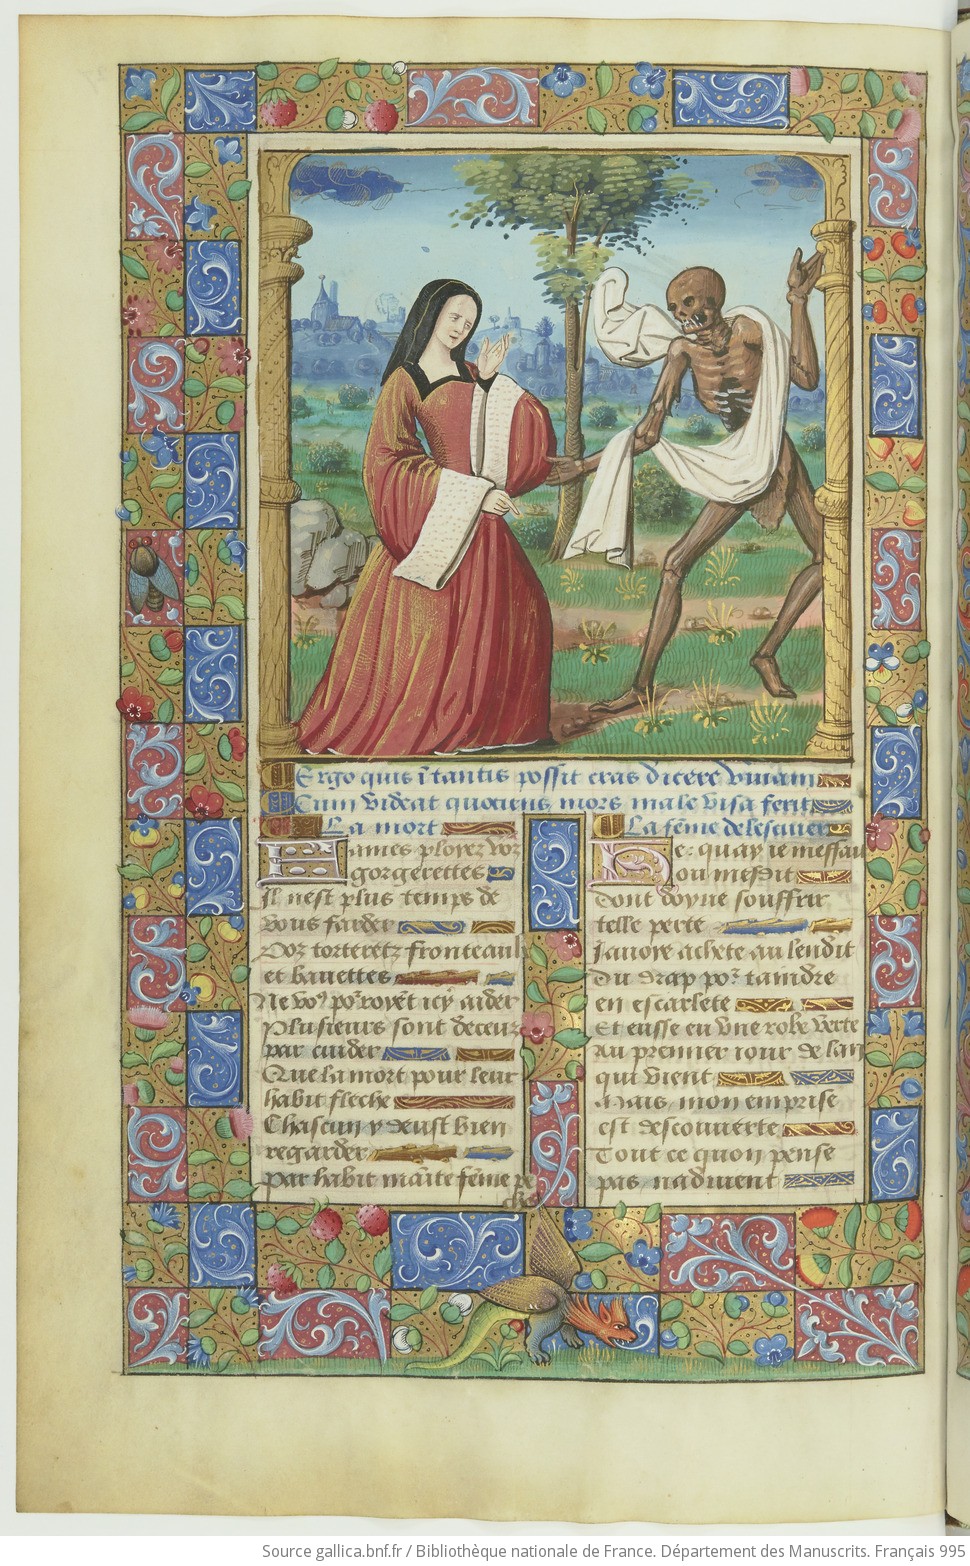 Ergo quis i tantis possit cras dicere vivam
Cum videat quociens mors male visa ferit
La mort
Dames ploiez voz
gorgerettes
Il nest plus temps de
vous farder
Voz torretz fronteaulx
et bauettes
Ne vo9 porroyet icy aider
Plusieurs sont deceuz
par cuider
Que la mort pour leur
habit fleche
Chascun y deust bien
regarder
Par habit mainte feme pe
che
La feme de lescuier
He: quay ie meffait
ou mesdit
Dont doyue souffrir
telle perte
Iauoye achete au lendit
Du drap por taindre
en escarlete
Et eusse eu vne robe verte
Au premier iour de lan
qui vient
Mais mon emprise
est descouuerte
Tout ce quon pense
pas naduient
Source gallica.bnf.fr / Bibliothèque nationale de France. Département des Manuscrits. Français 995